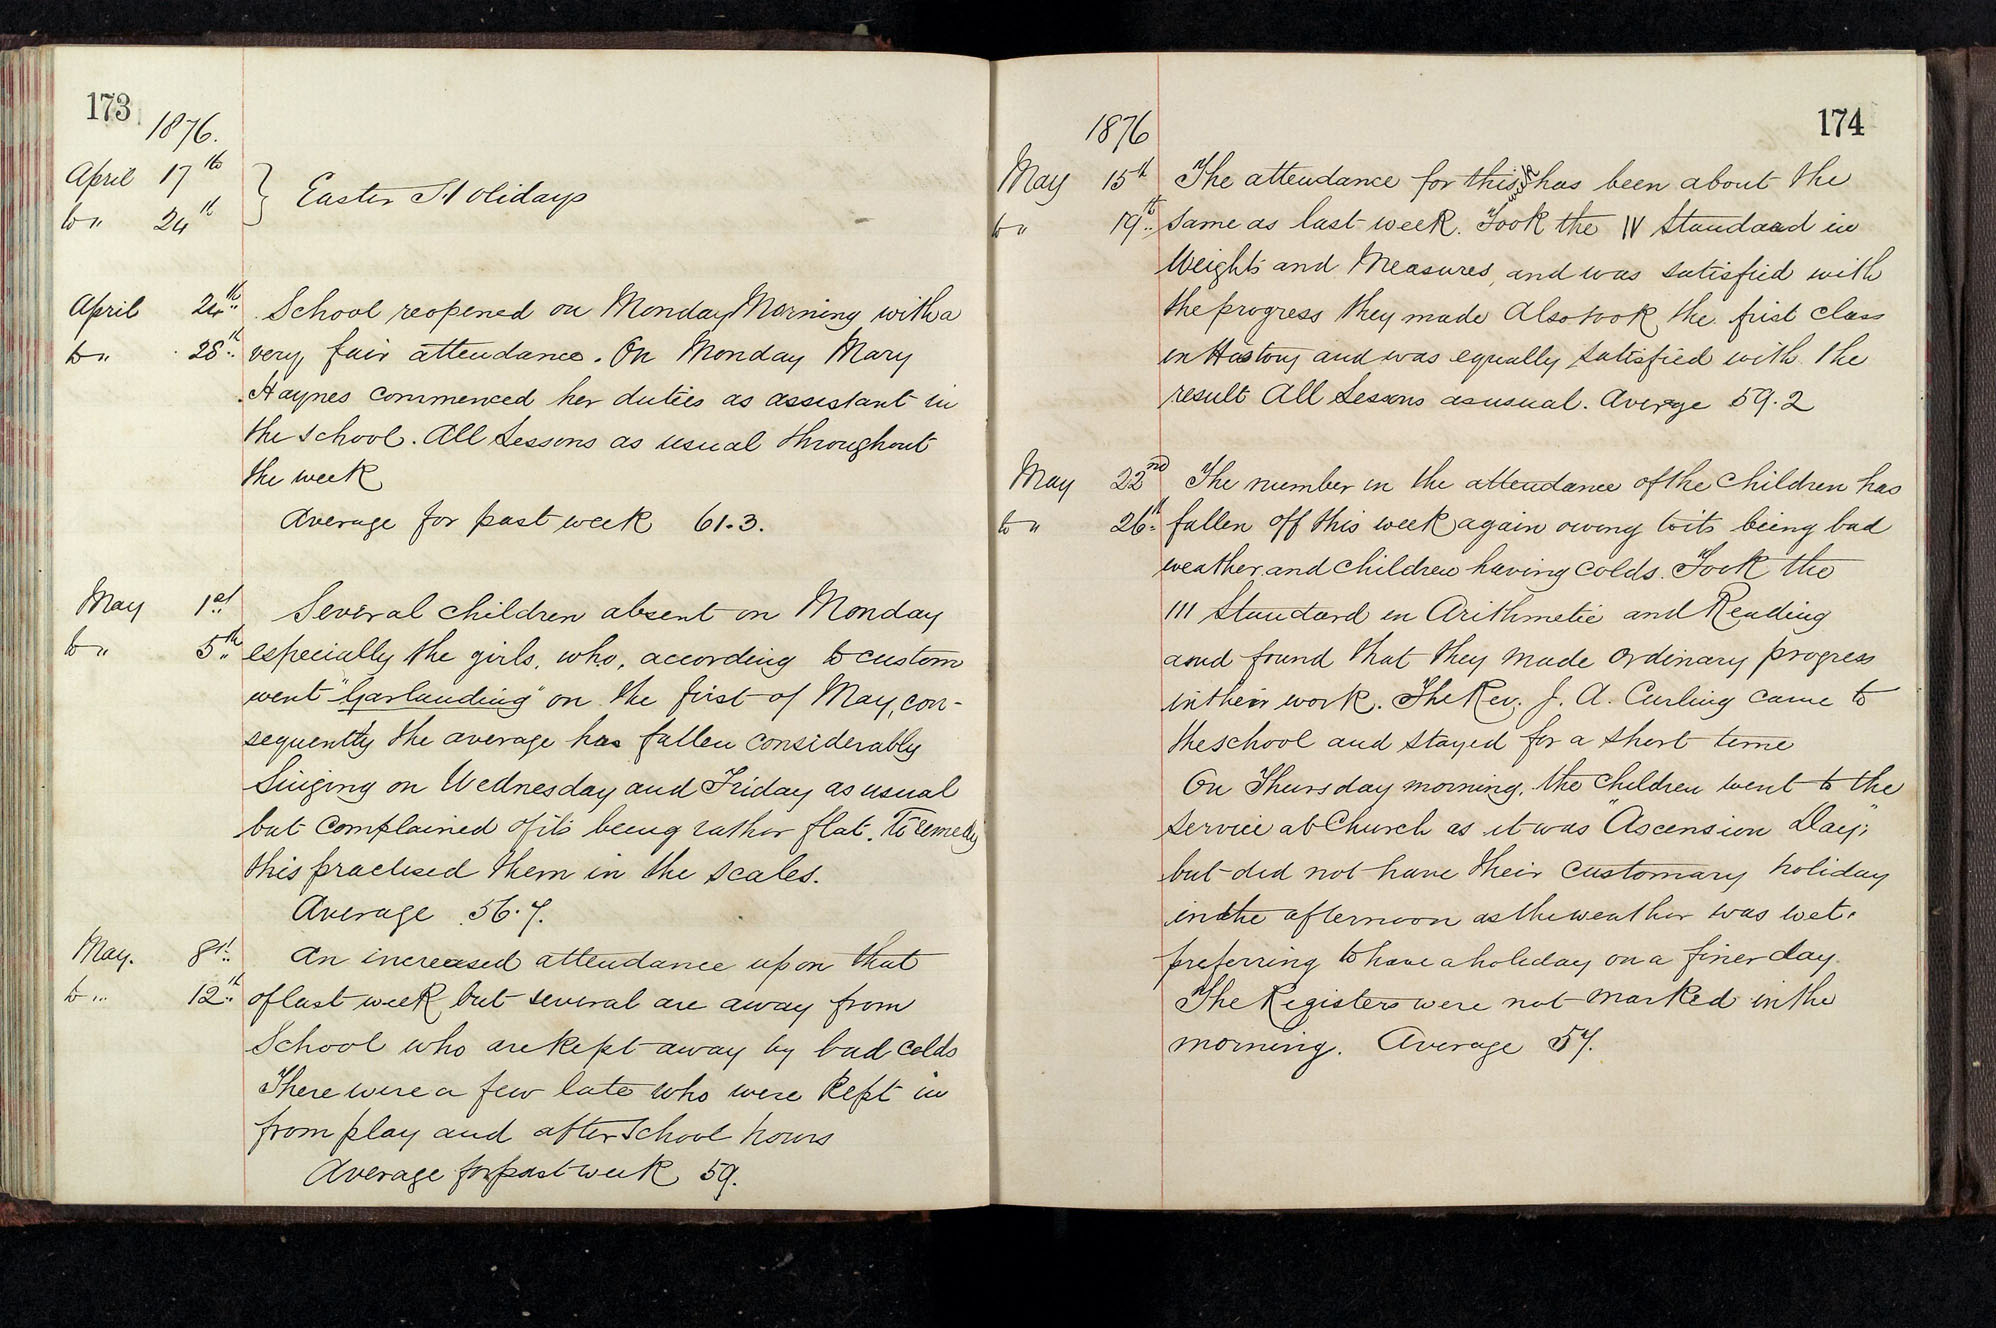 173
1876.
April 17th } Easter Holidays
to " 24th
April 24th School reopened on Monday Morning with a
to " 28th very fair attendance. On Monday Mary
Haynes commenced her duties as assistant in
the school. All Lessons as usual throughout
the week
Average for past week 61.3.
May 1st Several children absent on Monday
to " 5th especially the girls, who, according to custom
went "Garlanding" on the first of May, con-
sequently the average has fallen considerably
Singing on Wednesday and Friday as usual
but complained of its being rather flat. To remedy
this practised them in the scales.
Average 56.7.
May. 8th An increased attendance upon that
to " 12th of last week but several are away from
School who are kept away by bad colds
There were a few late who were kept in
from play and after school hours
Average for past week 59.
174
1876
May 15th The attendance for this week has been about the
to " 19th same as last week. Took the IV Standard in
Weights and Measures, and was satisfied with
the progress they made Also took the first class
in History and was equally satisfied with the
result All Lessons as usual. Average 59.2
May 22nd The number in the attendance of the children has
to " 26th fallen off this week again owing to its being bad
weather and children having colds. Took the
III Standard in Arithmetic and Reading
and found that they made ordinary progress
in their work. The Rev. J. A. Curling came to
the school and stayed for a short time
On Thursday morning, the children went to the
service at Church as it was "Ascension Day;"
but did not have their customary holiday
in the afternoon as the weather was wet.
preferring to have a holiday on a finer day.
The Registers were not marked in the
morning. Average 57.